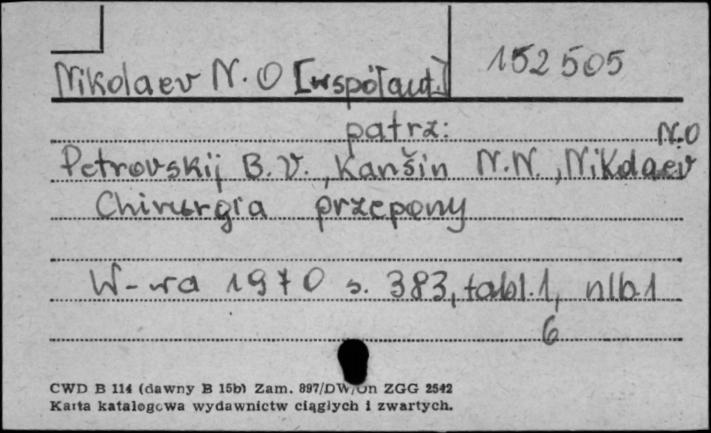 152505
Nikolaev N.O [współaut.]
patrz: N.O
Petrovskij B.V., Kanšin N.N., Nikolaev
Chirurgia przepony
W-wa 1970 s. 383, tabl. 1, nlb. 1
6
CWD B 114 (dawny B 15b) Zam. 897/DW/Un ZGG 2542
Karta katalogowa wydawnictw ciągłych i zwartych.